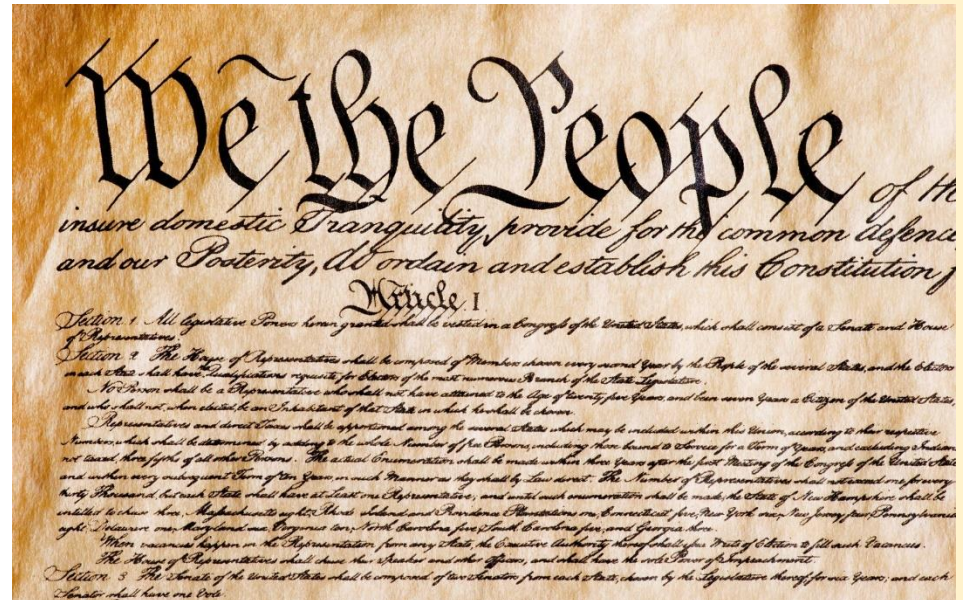 We the People of the
insure domestic Tranquility, provide for the common defence
and our Posterity, do ordain and establish this Constitution f
Article I
Section 1 All legislative Powers herein granted shall be vested in a Congress of the United States, which shall consist of a Senate and House
of Representatives.
Section 2 The House of Representatives shall be composed of Members chosen every second Year by the People of the several States, and the Electors
in each State shall have the Qualifications requisite for Electors of the most numerous Branch of the State Legislature.
No Person shall be a Representative who shall not have attained to the Age of twenty five Years, and been seven Years a Citizen of the United States,
and who shall not, when elected, be an Inhabitant of that State in which he shall be chosen.
Representatives and direct Taxes shall be apportioned among the several States which may be included within this Union, according to their respective
Numbers, which shall be determined by adding to the whole Number of free Persons, including those bound to Service for a Term of Years, and excluding Indians
not taxed, three fifths of all other Persons. The actual Enumeration shall be made within three Years after the first Meeting of the Congress of the United State
and within every subsequent Term of ten Years, in such Manner as they shall by Law direct. The Number of Representatives shall not exceed one for every
thirty Thousand, but each State shall have at Least one Representative, and until such enumeration shall be made, the State of New Hampshire shall be
entitled to chuse three, Massachusetts eight, Rhode Island and Providence Plantations one, Connecticut five, New York six, New Jersey four, Pennsylvania
eight, Delaware one, Maryland six, Virginia ten, North Carolina five, South Carolina five, and Georgia three.
When vacancies happen in the Representation from any State, the Executive Authority thereof shall issue Writs of Election to fill such Vacancies.
The House of Representatives shall chuse their Speaker and other Officers, and shall have the sole Power of Impeachment.
Section 3 The Senate of the United States shall be composed of two Senators from each State, chosen by the Legislature thereof, for six Years; and each
Senator shall have one Vote.